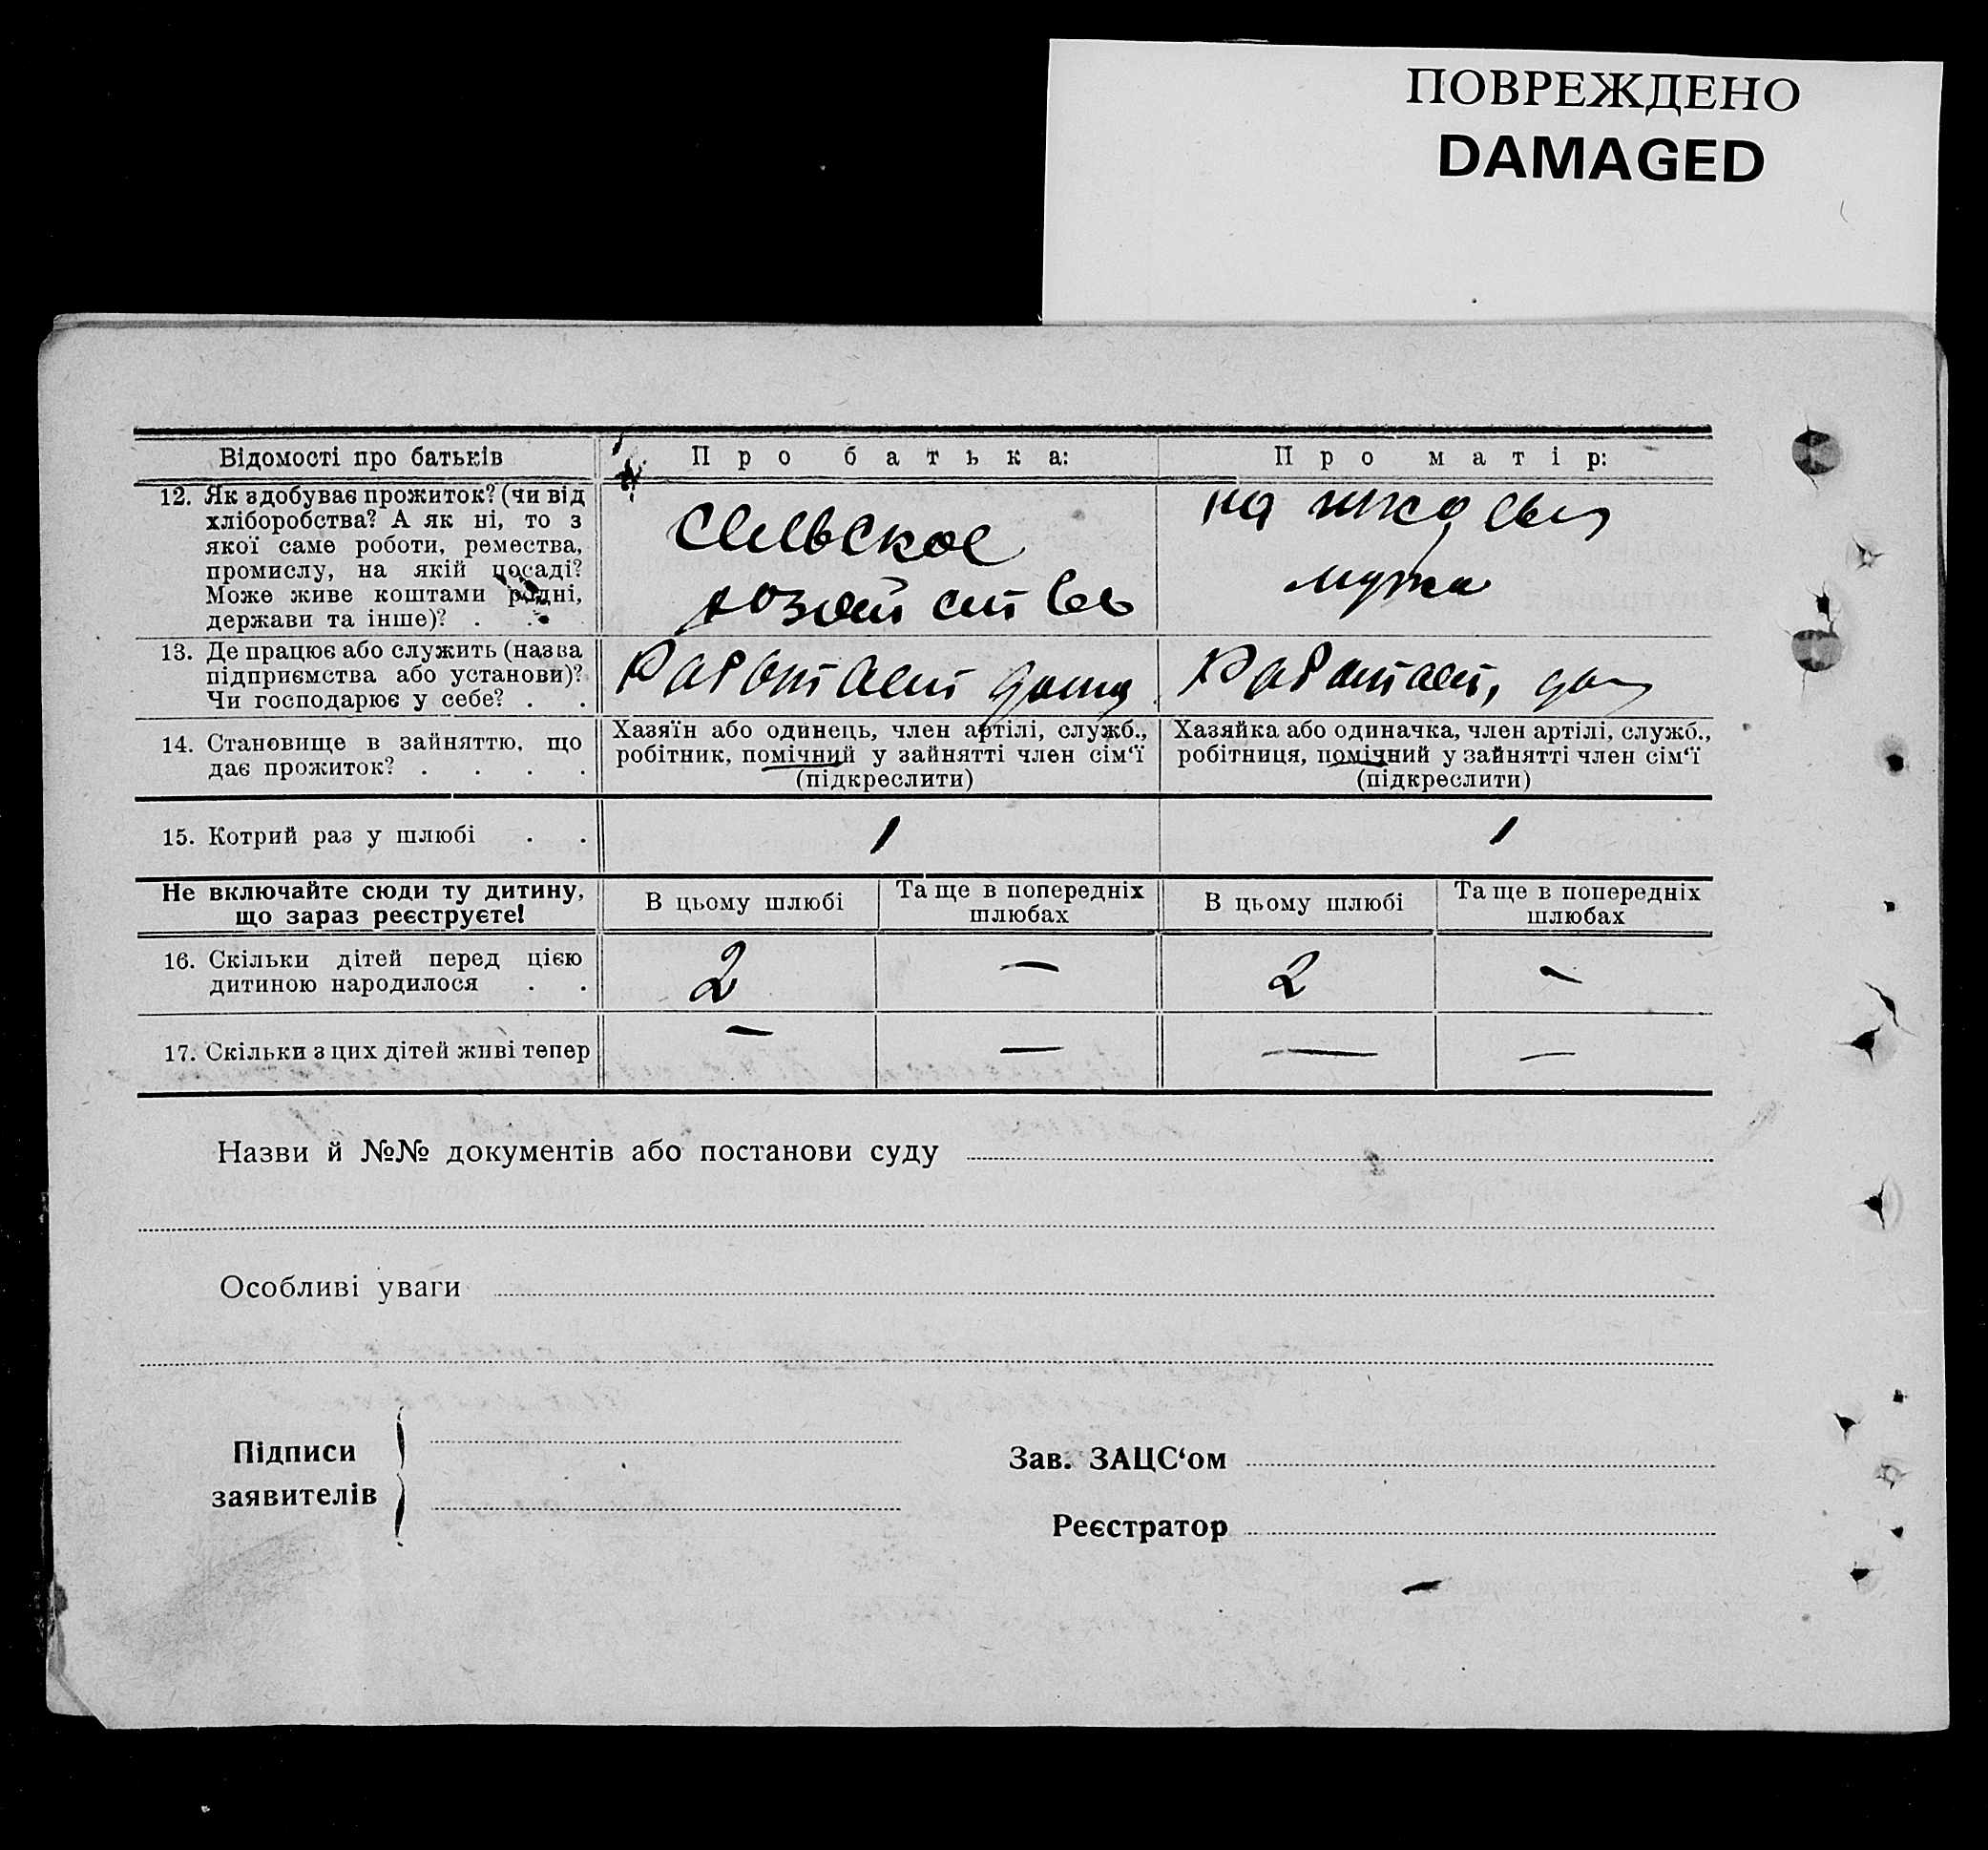 ПОВРЕЖДЕНО
DAMAGED
Відомості про батьків
Про батька:
Про матір:
12. Як здобуває прожиток? (чи від
хліборобства? А як ні, то з
якої саме роботи, ремества,
промислу, на якій посаді?
Може живе коштами рідні,
держави та інше)? .
сельское
хозяйство
на
мужа
13. Де працює або служить (назва
підприємства або установи)?
Чи господарює у себе? . .
Работает дома
Работает, дома
14. Становище в зайняттю, що
дає прожиток? . . . .
Хазяїн або одинець, член артілі, служб.,
робітник, помічний у зайнятті член сім‘ї
(підкреслити)
Хазяйка або одиначка, член артілі, служб.,
робітниця, помічний у зайнятті член сім‘ї
(підкреслити)
15. Котрий раз у шлюбі . .
1
1
Не включайте сюди ту дитину,
що зараз реєструєте!
В цьому шлюбі
Та ще в попередніх
шлюбах
В цьому шлюбі
Та ще в попередніх
шлюбах
16. Скільки дітей перед цією
дитиною народилося . .
2
—
2
—
17. Скільки з цих дітей живі тепер
—
—
—
—
Назви й №№ документів або постанови суду
Особливі уваги
Підписи
заявителів
Зав. ЗАЦС‘ом
Реєстратор